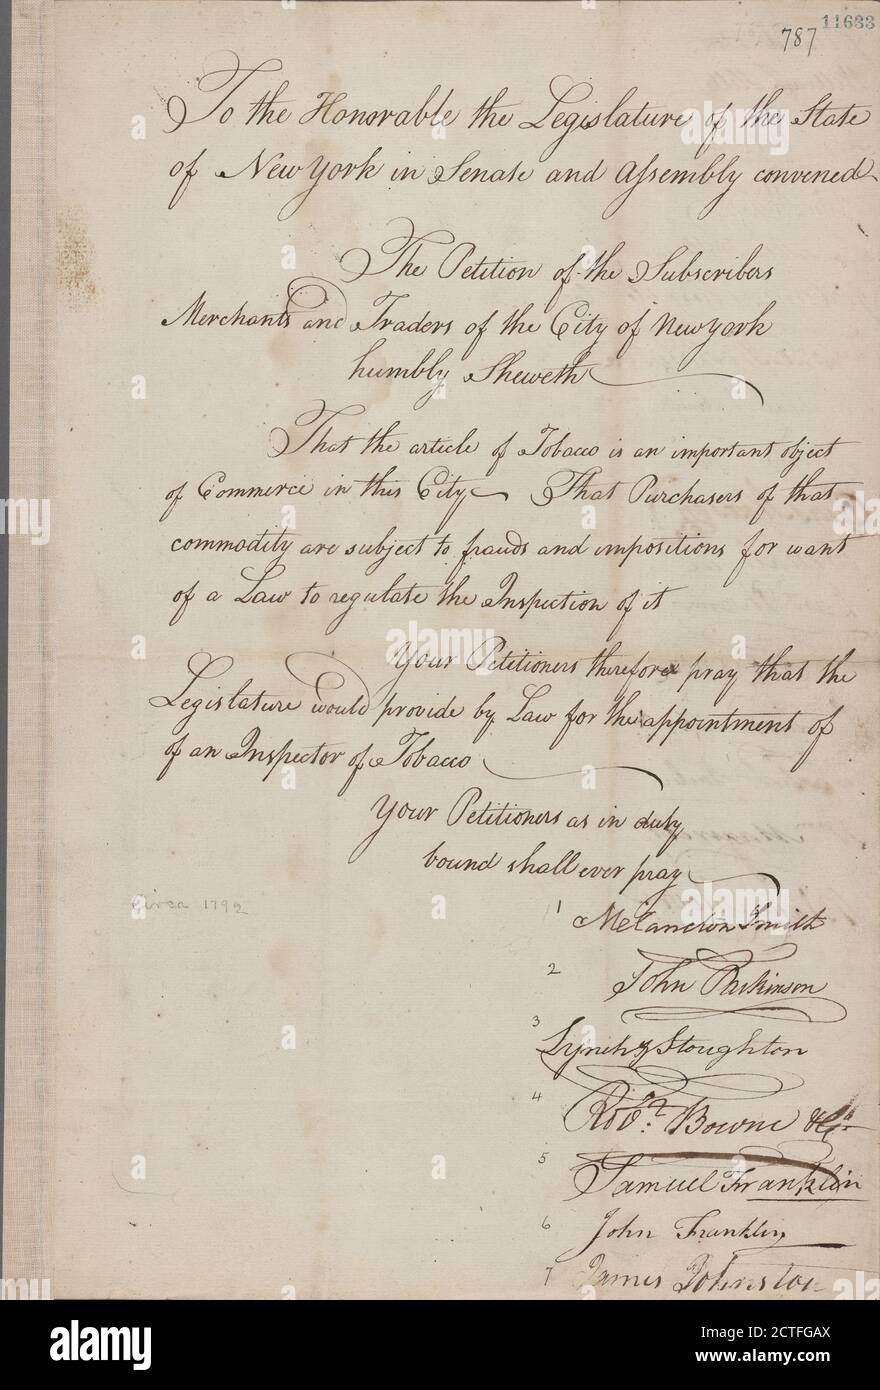 11633
787
To the Honorable the Legislature of the State
of New York in Senate and Assembly convened
The Petition of the Subscribers
Merchants and Traders of the City of New York
humbly Sheweth
That the article of Tobacco is an important object
of Commerce in this City That Purchasers of that
commodity are subject to frauds and impositions for want
of a Law to regulate the Inspection of it
Your Petitioners therefore pray that the
Legislature would provide by Law for the appointment of
of an Inspector of Tobacco
Your Petitioners as in duty
bound shall ever pray
circa 1792
1 Melancton Smith
2 John Parkinson
3 Lynch & Stoughton
4 Bowne & Co
5 Samuel Franklin
6 John Franklin
7 James Johnston
alamy
Image ID: 2CTFGAX
www.alamy.com